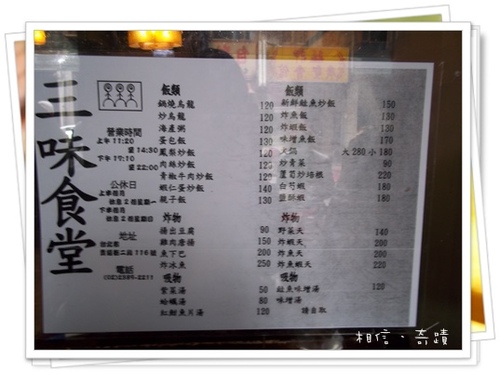 三味食堂
營業時間
上午11:20
至14:30
下午17:10
至22:00
公休日
地址
貴陽街二段116號
電話
(02)2389-2211
飯類
鍋燒烏龍 120
炒烏龍 120
海產粥 120
蛋包飯 130
鳳梨炒飯 120
肉絲炒飯 120
青椒牛肉炒飯 130
蝦仁蛋炒飯 140
親子飯 130
炸物
揚出豆腐 90
雞肉唐揚 150
魚下巴 200
炸冰魚 250
吸物
紫菜湯 50
蛤蠣湯 80
紅魽魚片湯 120
飯類
新鮮鮭魚炒飯 150
炸魚飯 130
炸蝦飯 130
味增魚飯 170
火鍋 大280小180
炒青菜 90
蘆筍炒培根 220
白芍蝦 220
鹽酥蝦 220
炸物
野菜天 140
炸蝦天 200
炸魚天 200
炸魚蝦天 220
吸物
鮭魚味增湯 120
味增湯 請自取
相信、奇蹟